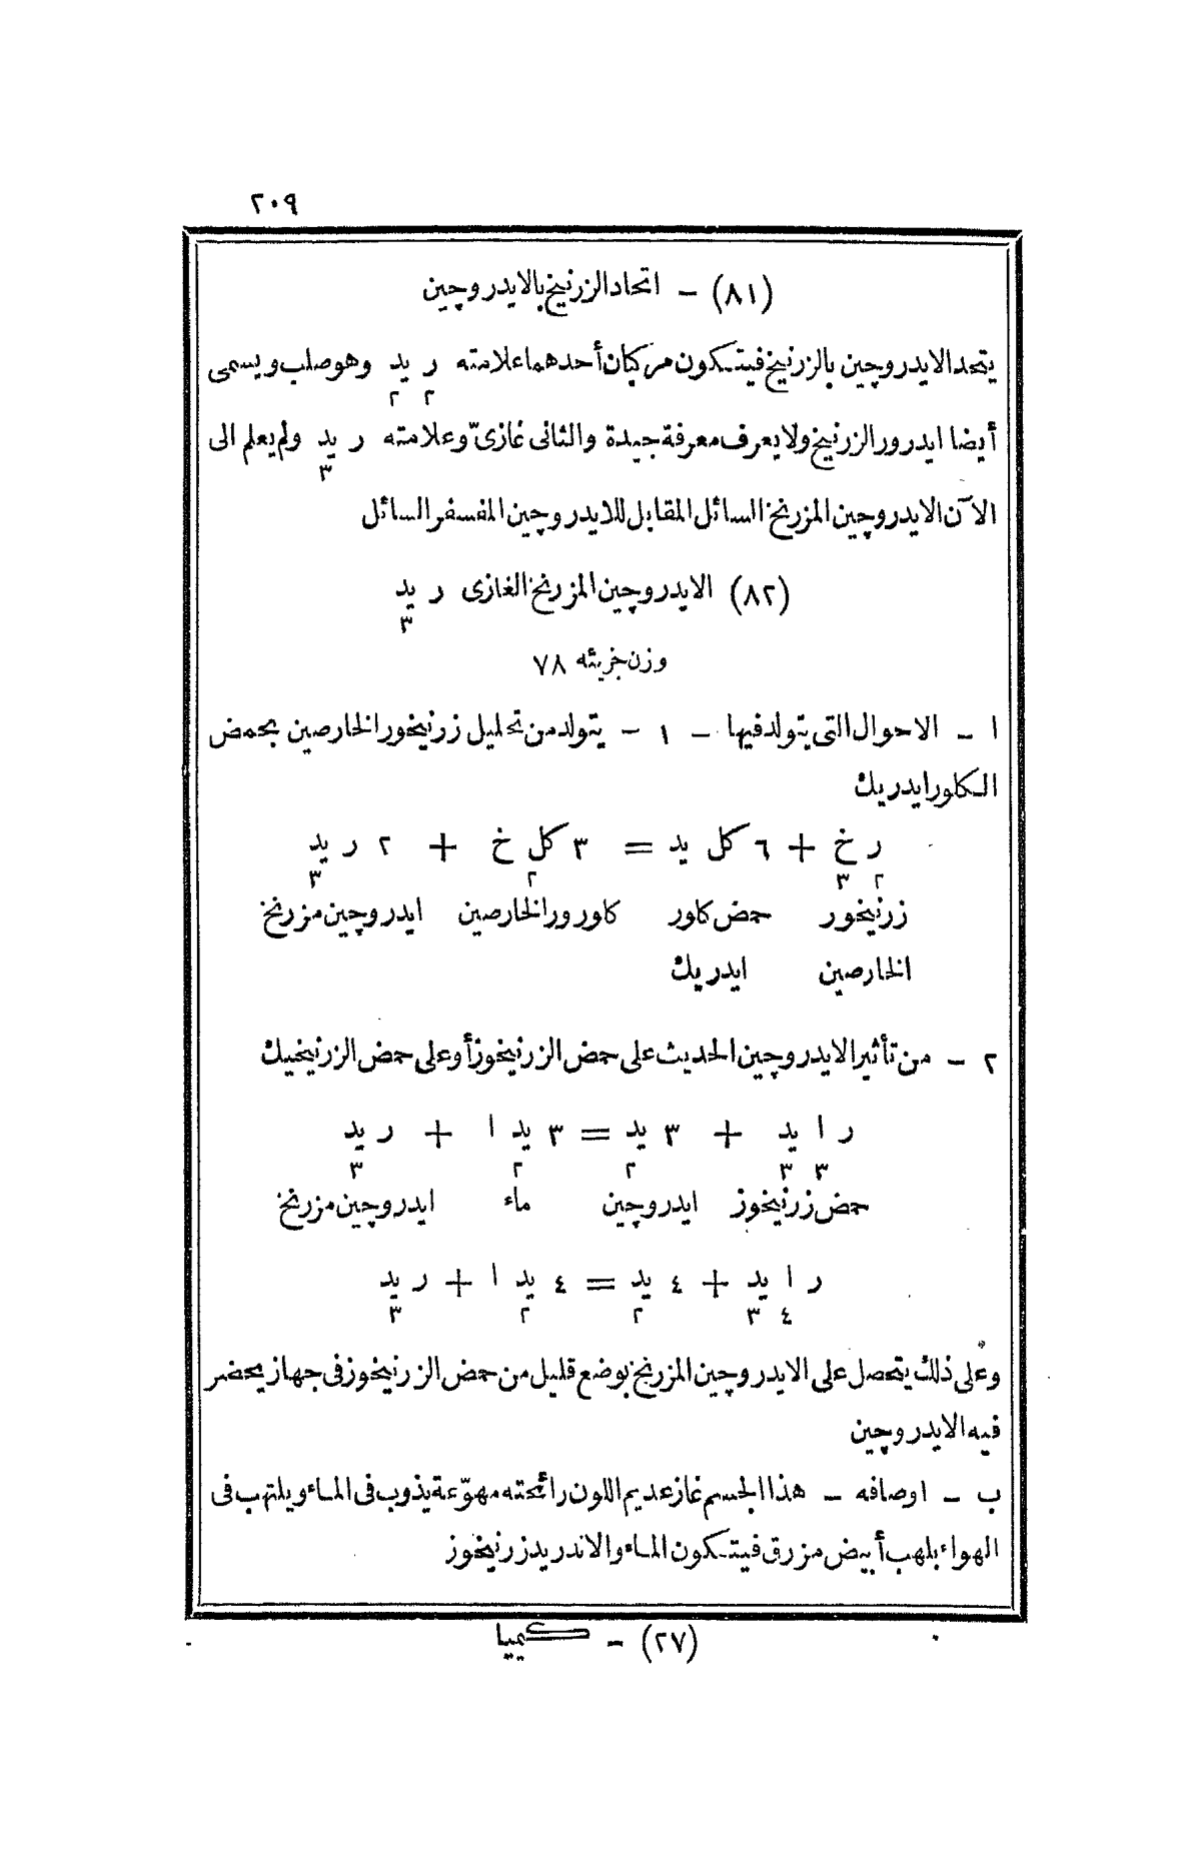 ٢٠٩
(٨١) - اتحاد الزرنيخ بالايدروچين
يتحد الايدروچين بالزرنيخ فيتكون مركبان أحدهما علامته ر يد وهو صلب ويسمى
٢ ٢
أيضا ايدرور الزرنيخ ولا يعرف معرفة جيدة والثانى غازىّ وعلامته ر يد ولم يعلم الى
٣
الآن الايدروچين المزرنخ السائل المقابل للايدروچين المفسفر السائل
(٨٢) الايدروچين المزرنخ الغازى ر يد
٣
وزن جزيئه ٧٨
ا - الاحوال التى يتولد فيها - ١ - يتولد من تحليل زرنيخور الخارصين بحمض
الكلورايدريك
ر خ + ٦ كل يد = ٣ كل خ + ٢ ر يد
٢ ٣ ٢ ٣
زرنيخور حمض كلور كلورور الخارصين ايدروچين مزرنخ
الخارصين ايدريك
٢ - من تأثير الايدروچين الحديث على حمض الزرنيخوز أوعلى حمض الزرنيخيك
ر ا يد + ٣ يد = ٣ يد ا + ر يد
٣ ٣ ٢ ٢ ٣
حمض زرنيخوز ايدروچين ماء ايدروچين مزرنخ
ر ا يد + ٤ يد = ٤ يد ا + ر يد
٤ ٣ ٢ ٢ ٣
وعلى ذلك يتحصل على الايدروچين المزرنخ بوضع قليل من حمض الزرنيخوز فى جهاز يحضر
فيه الايدروچين
ب - اوصافه - هذا الجسم غاز عديم اللون رائحته مهوّعة يذوب فى الماء ويلتهب فى
الهواء بلهب أبيض مزرق فيتكون الماء والاندريد زرنيخوز
(٢٧) - كيميا